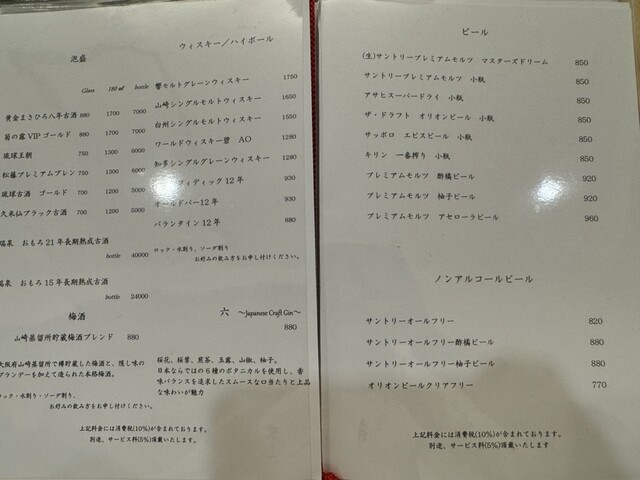 泡盛
Glass 180㎖ bottle
黄金まさひろ八年古酒 880 1700 7000
菊の露 VIP ゴールド 880 1700 7000
琉球王朝 750 1300 6000
松藤プレミアムブレンド 750 1300 6000
琉球古酒 ゴールド 700 1200 5000
久米仙ブラック古酒 700 1200 5000
瑞泉 おもろ21年長期熟成古酒
bottle 40000
瑞泉 おもろ15年長期熟成古酒
bottle 24000
梅酒
山崎蒸留所貯蔵梅酒ブレンド 880
大阪府山崎蒸留所で樽貯蔵した梅酒と、隠し味の
ブランデーを加えて造られた本格梅酒。
ロック・水割り・ソーダ割り、
お好みの飲み方をお申し付けください。
ウィスキー／ハイボール
響モルトグレーンウィスキー 1750
山崎シングルモルトウィスキー 1650
白州シングルモルトウィスキー 1550
ワールドウィスキー碧 AO 1280
知多シングルグレーンウィスキー 1280
フィディック12年 930
オールドパー12年 930
バランタイン12年 880
ロック・水割り、ソーダ割り
お好みの飲み方をお申し付けください。
六 ～Japanese Craft Gin～
880
桜花、桜葉、煎茶、玉露、山椒、柚子。
日本ならではの6種のボタニカルを使用し、香
味バランスを追求したスムースな口当たりと上品
な味わいが魅力
上記料金には消費税(10%)が含まれております。
別途、サービス料(5%)頂戴いたします
ビール
(生)サントリープレミアムモルツ マスターズドリーム 850
サントリープレミアムモルツ 小瓶 850
アサヒスーパードライ 小瓶 850
ザ・ドラフト オリオンビール 小瓶 850
サッポロ エビスビール 小瓶 850
キリン 一番搾り 小瓶 850
プレミアムモルツ 酢橘ビール 920
プレミアムモルツ 柚子ビール 920
プレミアムモルツ アセローラビール 960
ノンアルコールビール
サントリーオールフリー 820
サントリーオールフリー酢橘ビール 880
サントリーオールフリー柚子ビール 880
オリオンビールクリアフリー 770
上記料金には消費税(10%)が含まれております。
別途、サービス料(5%)頂戴いたします